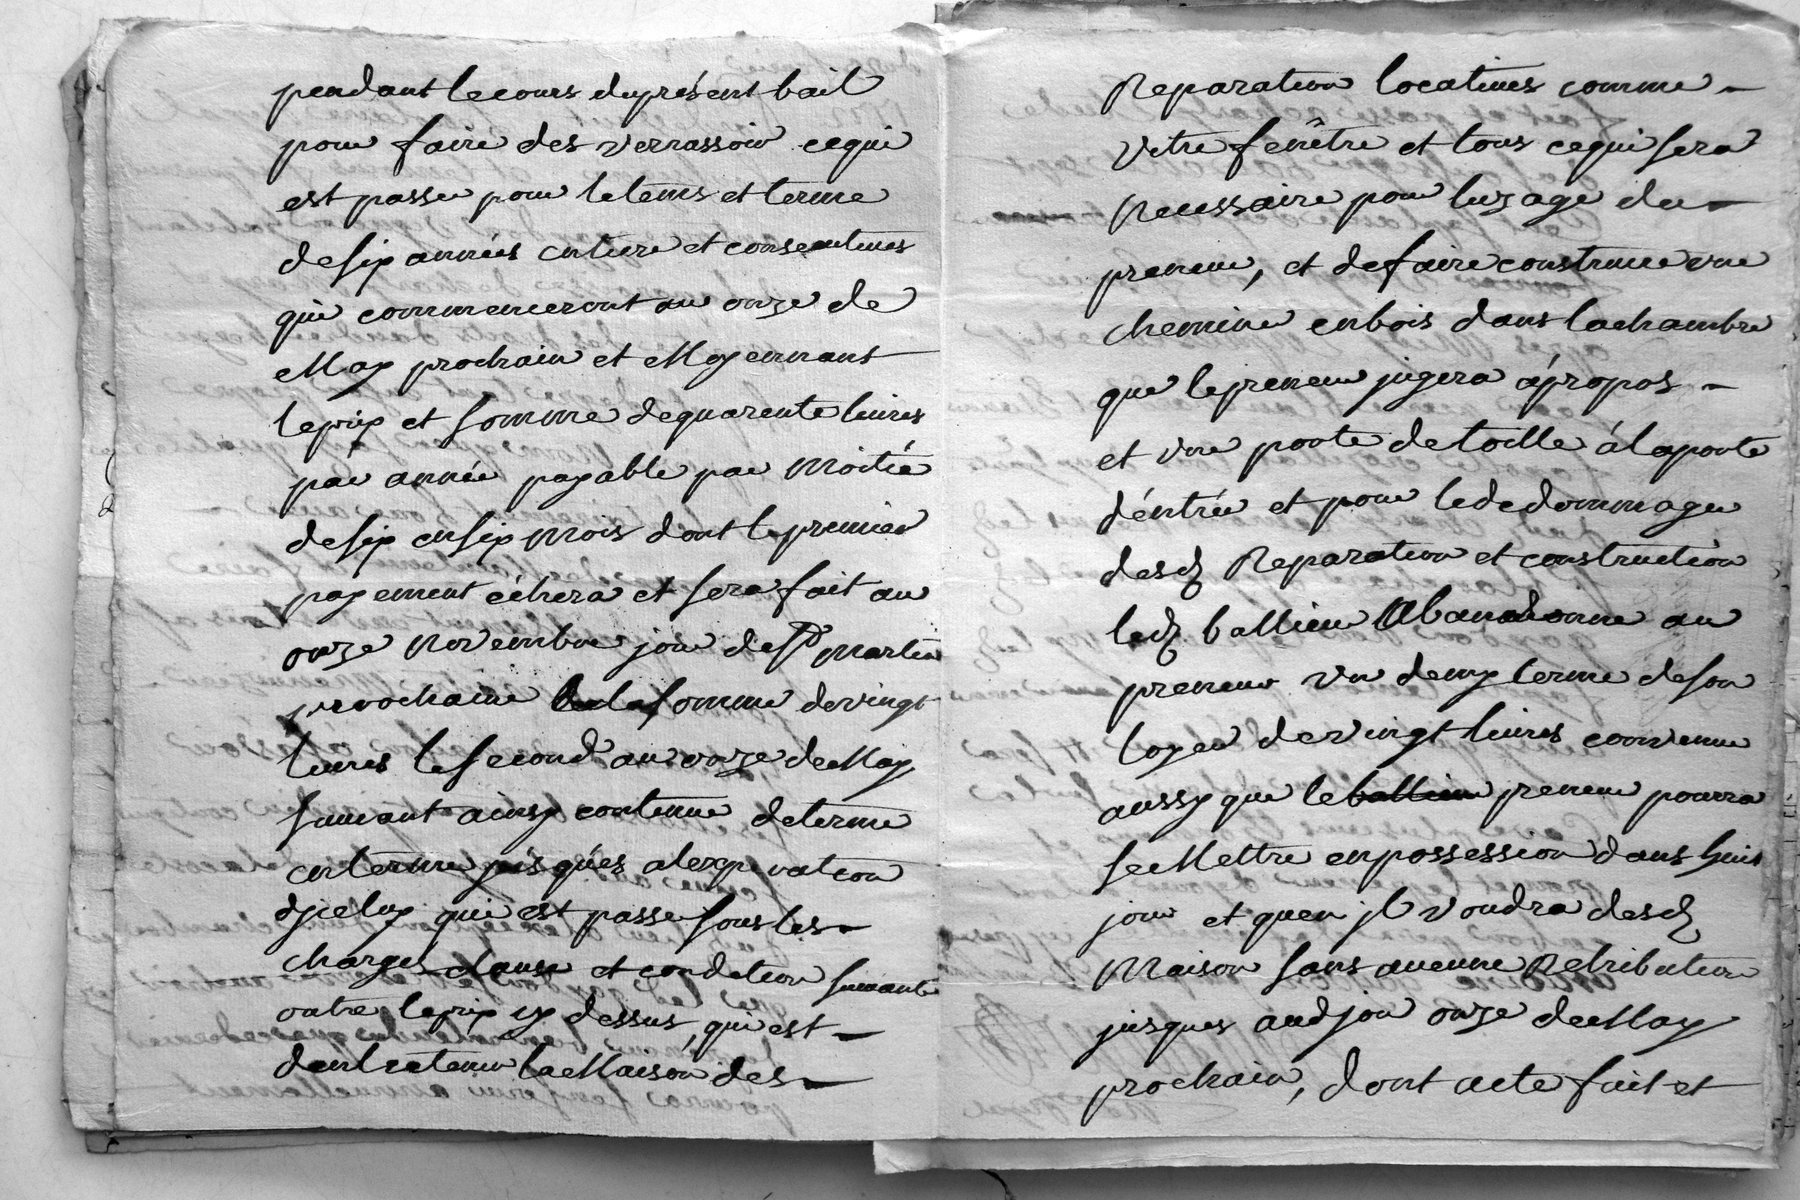 pendant le cours du présent bail
pour faire des verrassoir ce qui
est passer pour le tems et terme
de six années entiere et consecutives
qui commenceront au onze de
May prochain et Moyennant
le prix et somme de quarente livres
par année payable par moitié
de six en six mois dont le premier
payement échera et sera fait au
onze novembre jour de St martin
prochaine de la somme de vingt
livres le second au onze de May
suivant ainsy contenue de terme
en terme jusqu'es a lexpiration
djceluy qui est passe sous les
charges clause et condition suivante
outre le prix cy dessus, qui est
dentretenir la Maison des
Reparation locatives comme
vitre fenêtre et tous ce qui sera
necessaire pour luzage du
preneur, et de faire construire une
cheminé en bois dans la chambre
que le preneur jugera á propos
et une porte de toille á la porte
déntrée et pour le dedommager
desd Reparation et construction
led ballieur Abandonne au
preneur un demy terme de son
loyer de vingt livres convenu
aussy que le ballieur preneur pourra
se Mettre en possession dans huit
jour et quen jl voudra desd
Maison sans aucune Retribution
jusques aud jour onze de May
prochain, dont acte fait et